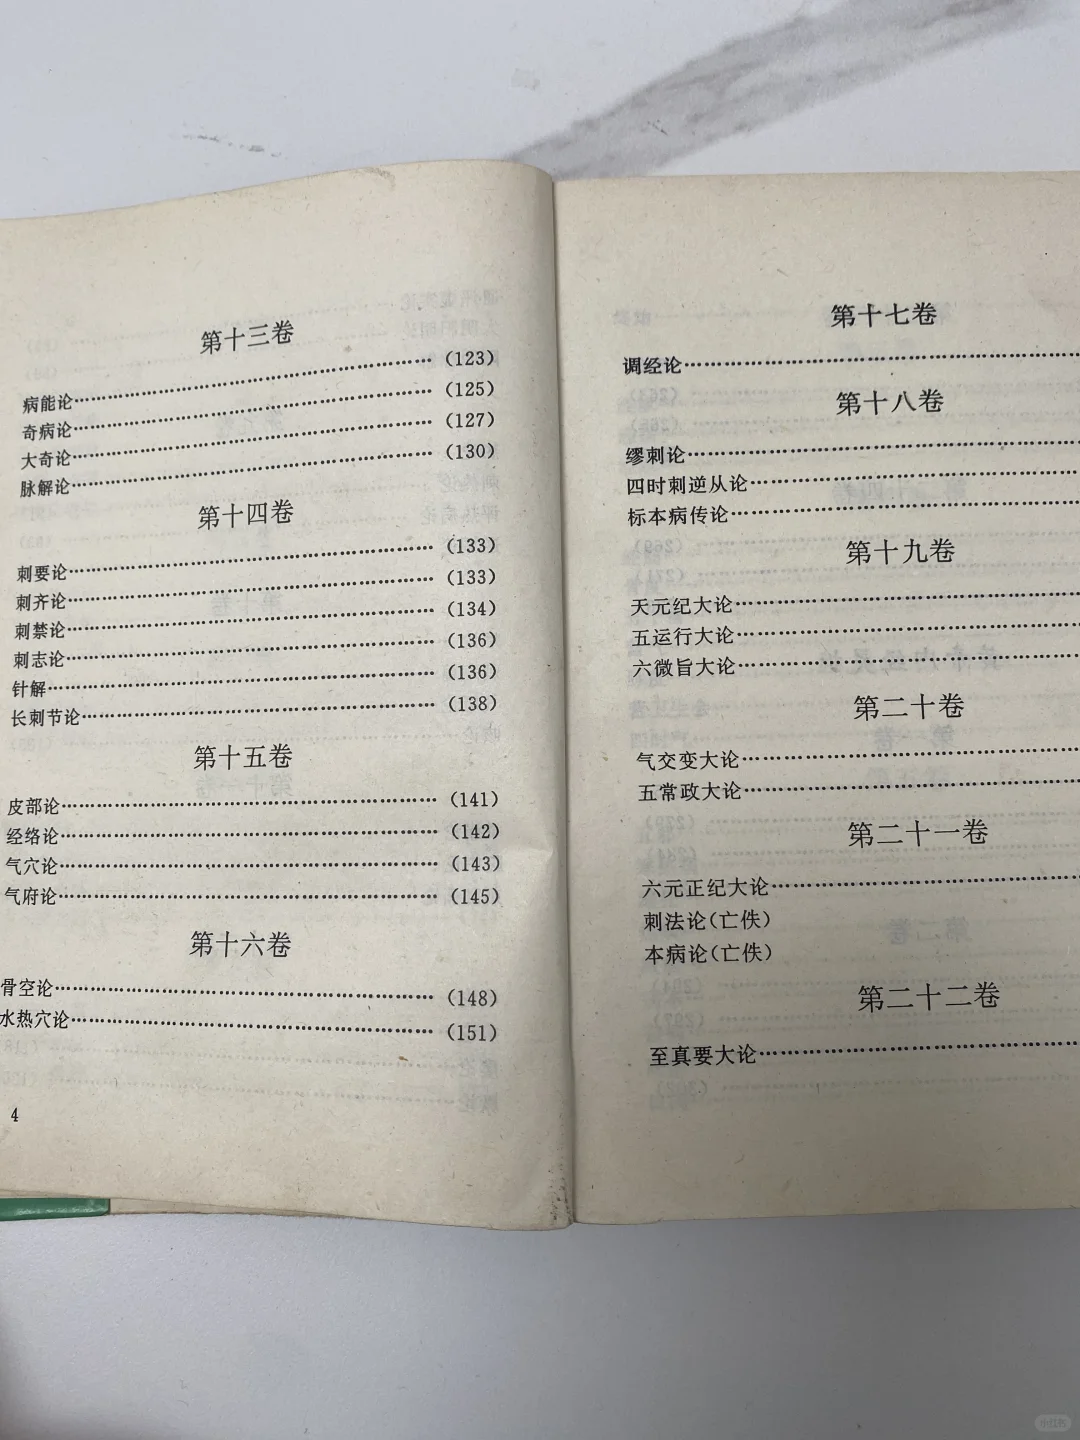 第十三卷
病能论……(123)
奇病论……(125)
大奇论……(127)
脉解论……(130)
第十四卷
刺要论……(133)
刺齐论……(133)
刺禁论……(134)
刺志论……(136)
针解……(136)
长刺节论……(138)
第十五卷
皮部论……(141)
经络论……(142)
气穴论……(143)
气府论……(145)
第十六卷
骨空论……(148)
水热穴论……(151)
4
第十七卷
调经论……
第十八卷
缪刺论……
四时刺逆从论……
标本病传论……
第十九卷
天元纪大论……
五运行大论……
六微旨大论……
第二十卷
气交变大论……
五常政大论……
第二十一卷
六元正纪大论……
刺法论(亡佚)
本病论(亡佚)
第二十二卷
至真要大论……
小红书